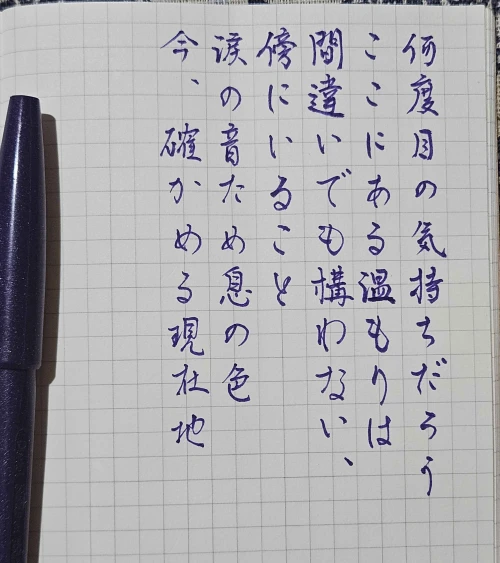 何度目の気持ちだろう
ここにある温もりは
間違いでも構わない、
傍にいること
涙の音ため息の色
今、確かめる現在地